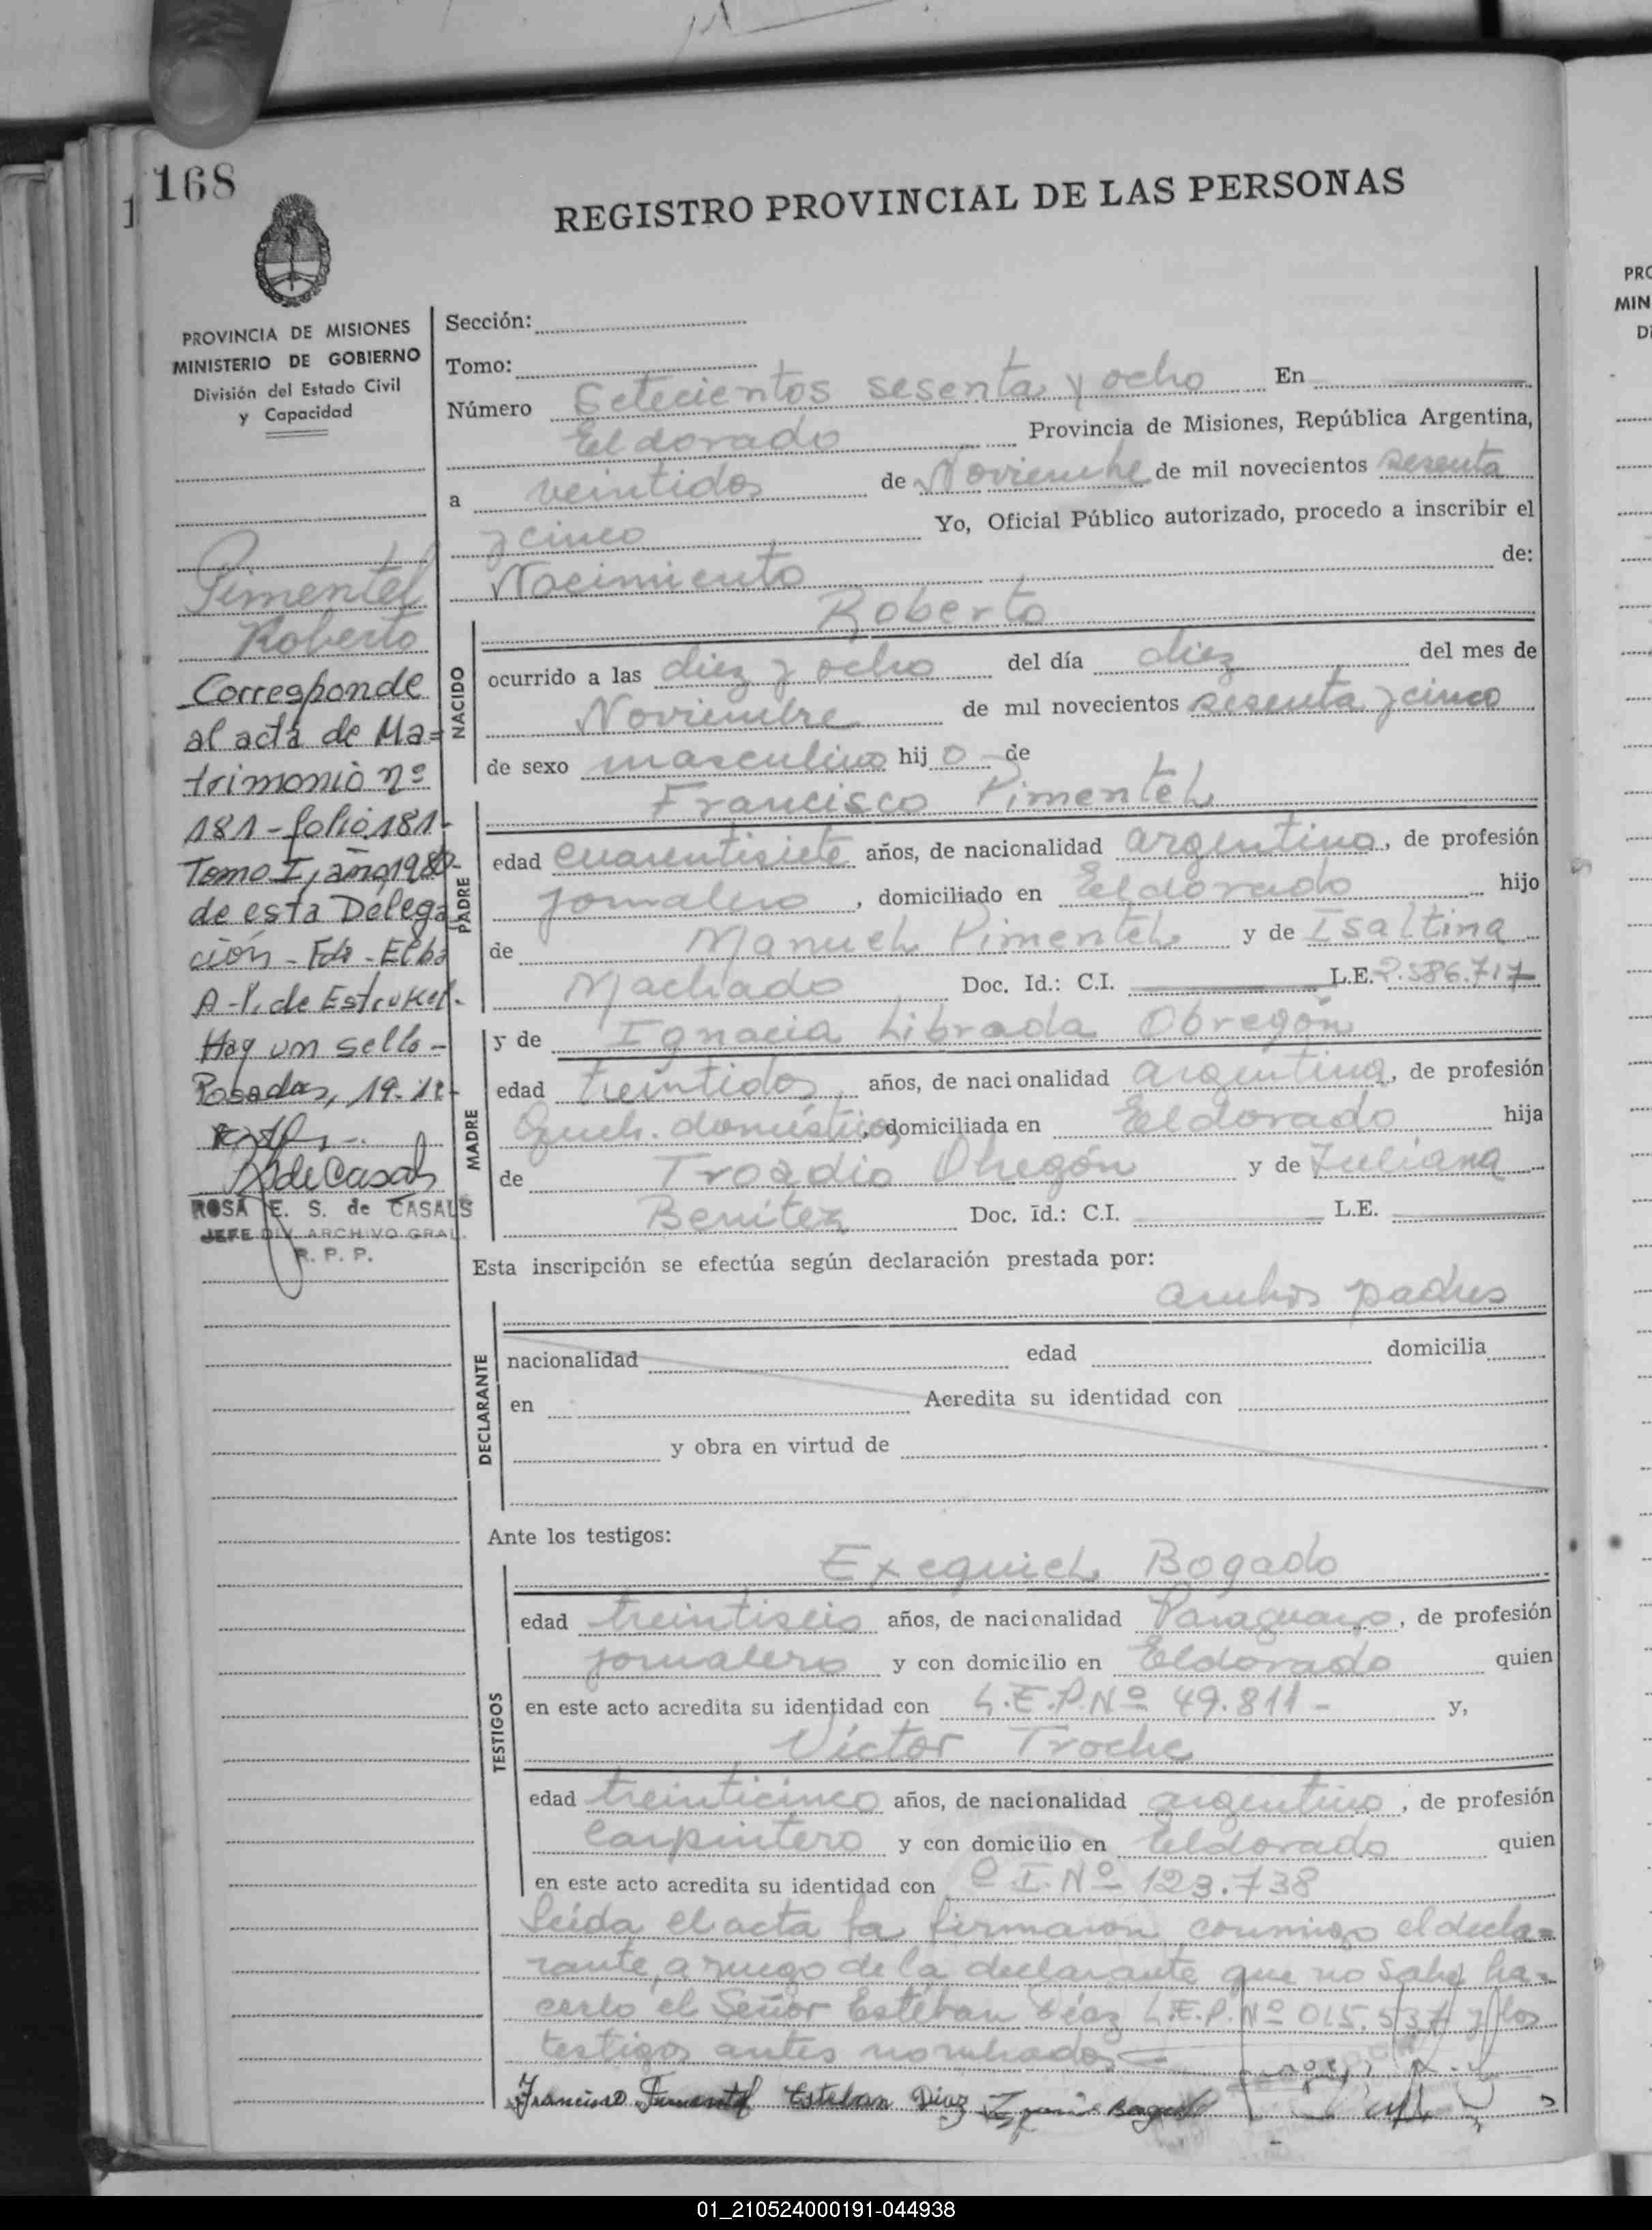 168
1
REGISTRO PROVINCIAL DE LAS PERSONAS
PROVINCIA DE MISIONES
MINISTERIO DE GOBIERNO
División del Estado Civil
y Capacidad
Pimentel
Roberto
Corresponde
al acta de Ma=
trimonio nº
181-folio 181-
Tomo I, año 1980-
de esta Delega
ción - Fdo - Elba
A-P. de Estcuket.
Hay un sello -
Posadas, 19.12-
ROSA E. S. de CASALS
JEFE DIV ARCHIVO GRAL.
R. P. P.
Sección:
Tomo:
Número Setecientos sesenta y ocho En
Eldorado Provincia de Misiones, República Argentina,
a veintidos de Noviembre de mil novecientos sesenta
y cinco Yo, Oficial Público autorizado, procedo a inscribir el
Nacimiento de:
NACIDO
Roberto
ocurrido a las diez y ocho del día diez del mes de
Noviembre de mil novecientos sesenta y cinco
de sexo masculino hij o de
PADRE
Francisco Pimentel
edad cuarentisiete años, de nacionalidad argentina, de profesión
jornalero, domiciliado en Eldorado hijo
de Manuel Pimentel y de Isaltina
Machado Doc. Id.: C.I. L.E. 2.586.717
MADRE
y de Ignacia Librada Obregón
edad treintidos años, de nacionalidad argentina, de profesión
Queh. doméstico, domiciliada en Eldorado hija
de Troadio Obregón y de Juliana
Benitez Doc. Id.: C.I. L.E.
Esta inscripción se efectúa según declaración prestada por:
ambos padres
DECLARANTE
nacionalidad edad domicilia
en Acredita su identidad con
y obra en virtud de
Ante los testigos:
TESTIGOS
Exequiel Bogado
edad treintiseis años, de nacionalidad Paraguayo, de profesión
jornalero y con domicilio en Eldorado quien
en este acto acredita su identidad con L.E.P. Nº 49.811 - y,
Víctor Troche
edad treinticinco años, de nacionalidad argentino, de profesión
Carpintero y con domicilio en Eldorado quien
en este acto acredita su identidad con C I. Nº 123.738
Leída el acta la firmaron conmigo el decla=
rante, a ruego de la declarante que no sabe ha-
cerlo el Señor Estéban Díaz L.E.P. Nº 015.537 y los
testigos antes nombrados
Francisco Pimentel Esteban Diaz
PRO
MIN
Di
01_210524000191-044938